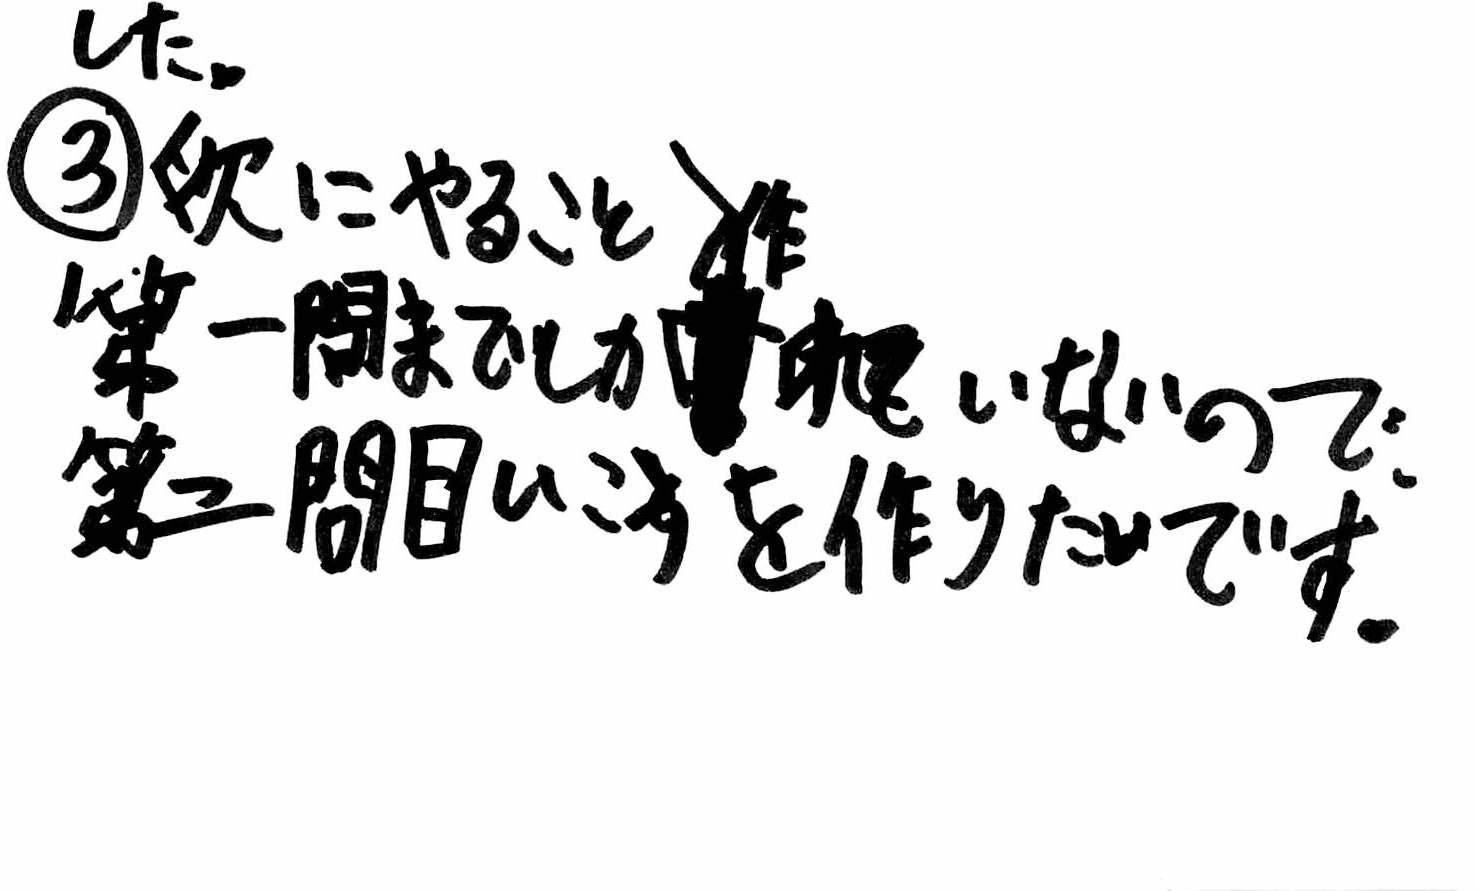 した。
③次にやること
第一問までしか作 いないので、
第二問目いこうを作りたいです。